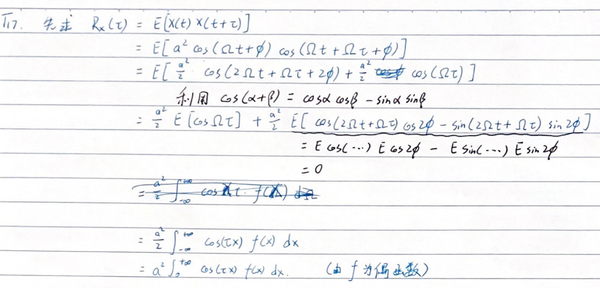 T17. 先求 Rx(τ) = E[X(t) X(t+τ)]
= E[a² cos(Ωt+φ) cos(Ωt+Ωτ+φ)]
= E[a²/2 cos(2Ωt+Ωτ+2φ) + a²/2 cos(Ωτ)]
利用 cos(α+β) = cosα cosβ - sinα sinβ
= a²/2 E[cosΩτ] + a²/2 E[cos(2Ωt+Ωτ) cos2φ - sin(2Ωt+Ωτ) sin2φ]
= E cos(...) E cos2φ - E sin(...) E sin2φ
= 0
= a²/2 ∫_{-∞}^{+∞} cos(τx) f(x) dx
= a² ∫_0^{+∞} cos(τx) f(x) dx. (由 f 为偶函数)